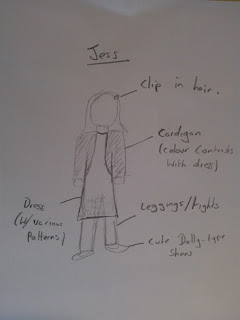 Jess
Clip in hair.
Cardigan
(colour Contrasts
With dress)
Dress
(W/ various
Patterns)
Leggings/tights
Cute Dolly-type
Shoes